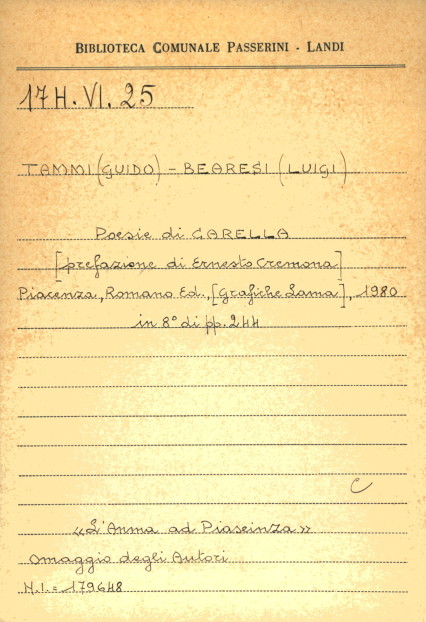 BIBLIOTECA COMUNALE PASSERINI - LANDI
17H. VI. 25
TAMMI (GUIDO) - BEARESI (LUIGI)
Poesie di CARELLA
[prefazione di Ernesto Cremona]
Piacenza, Romano Ed., [Grafiche Lama], 1980
in 8° di pp. 244
C
«L'Anma ad Piaseinza»
Omaggio degli Autori
N.I. = 179648